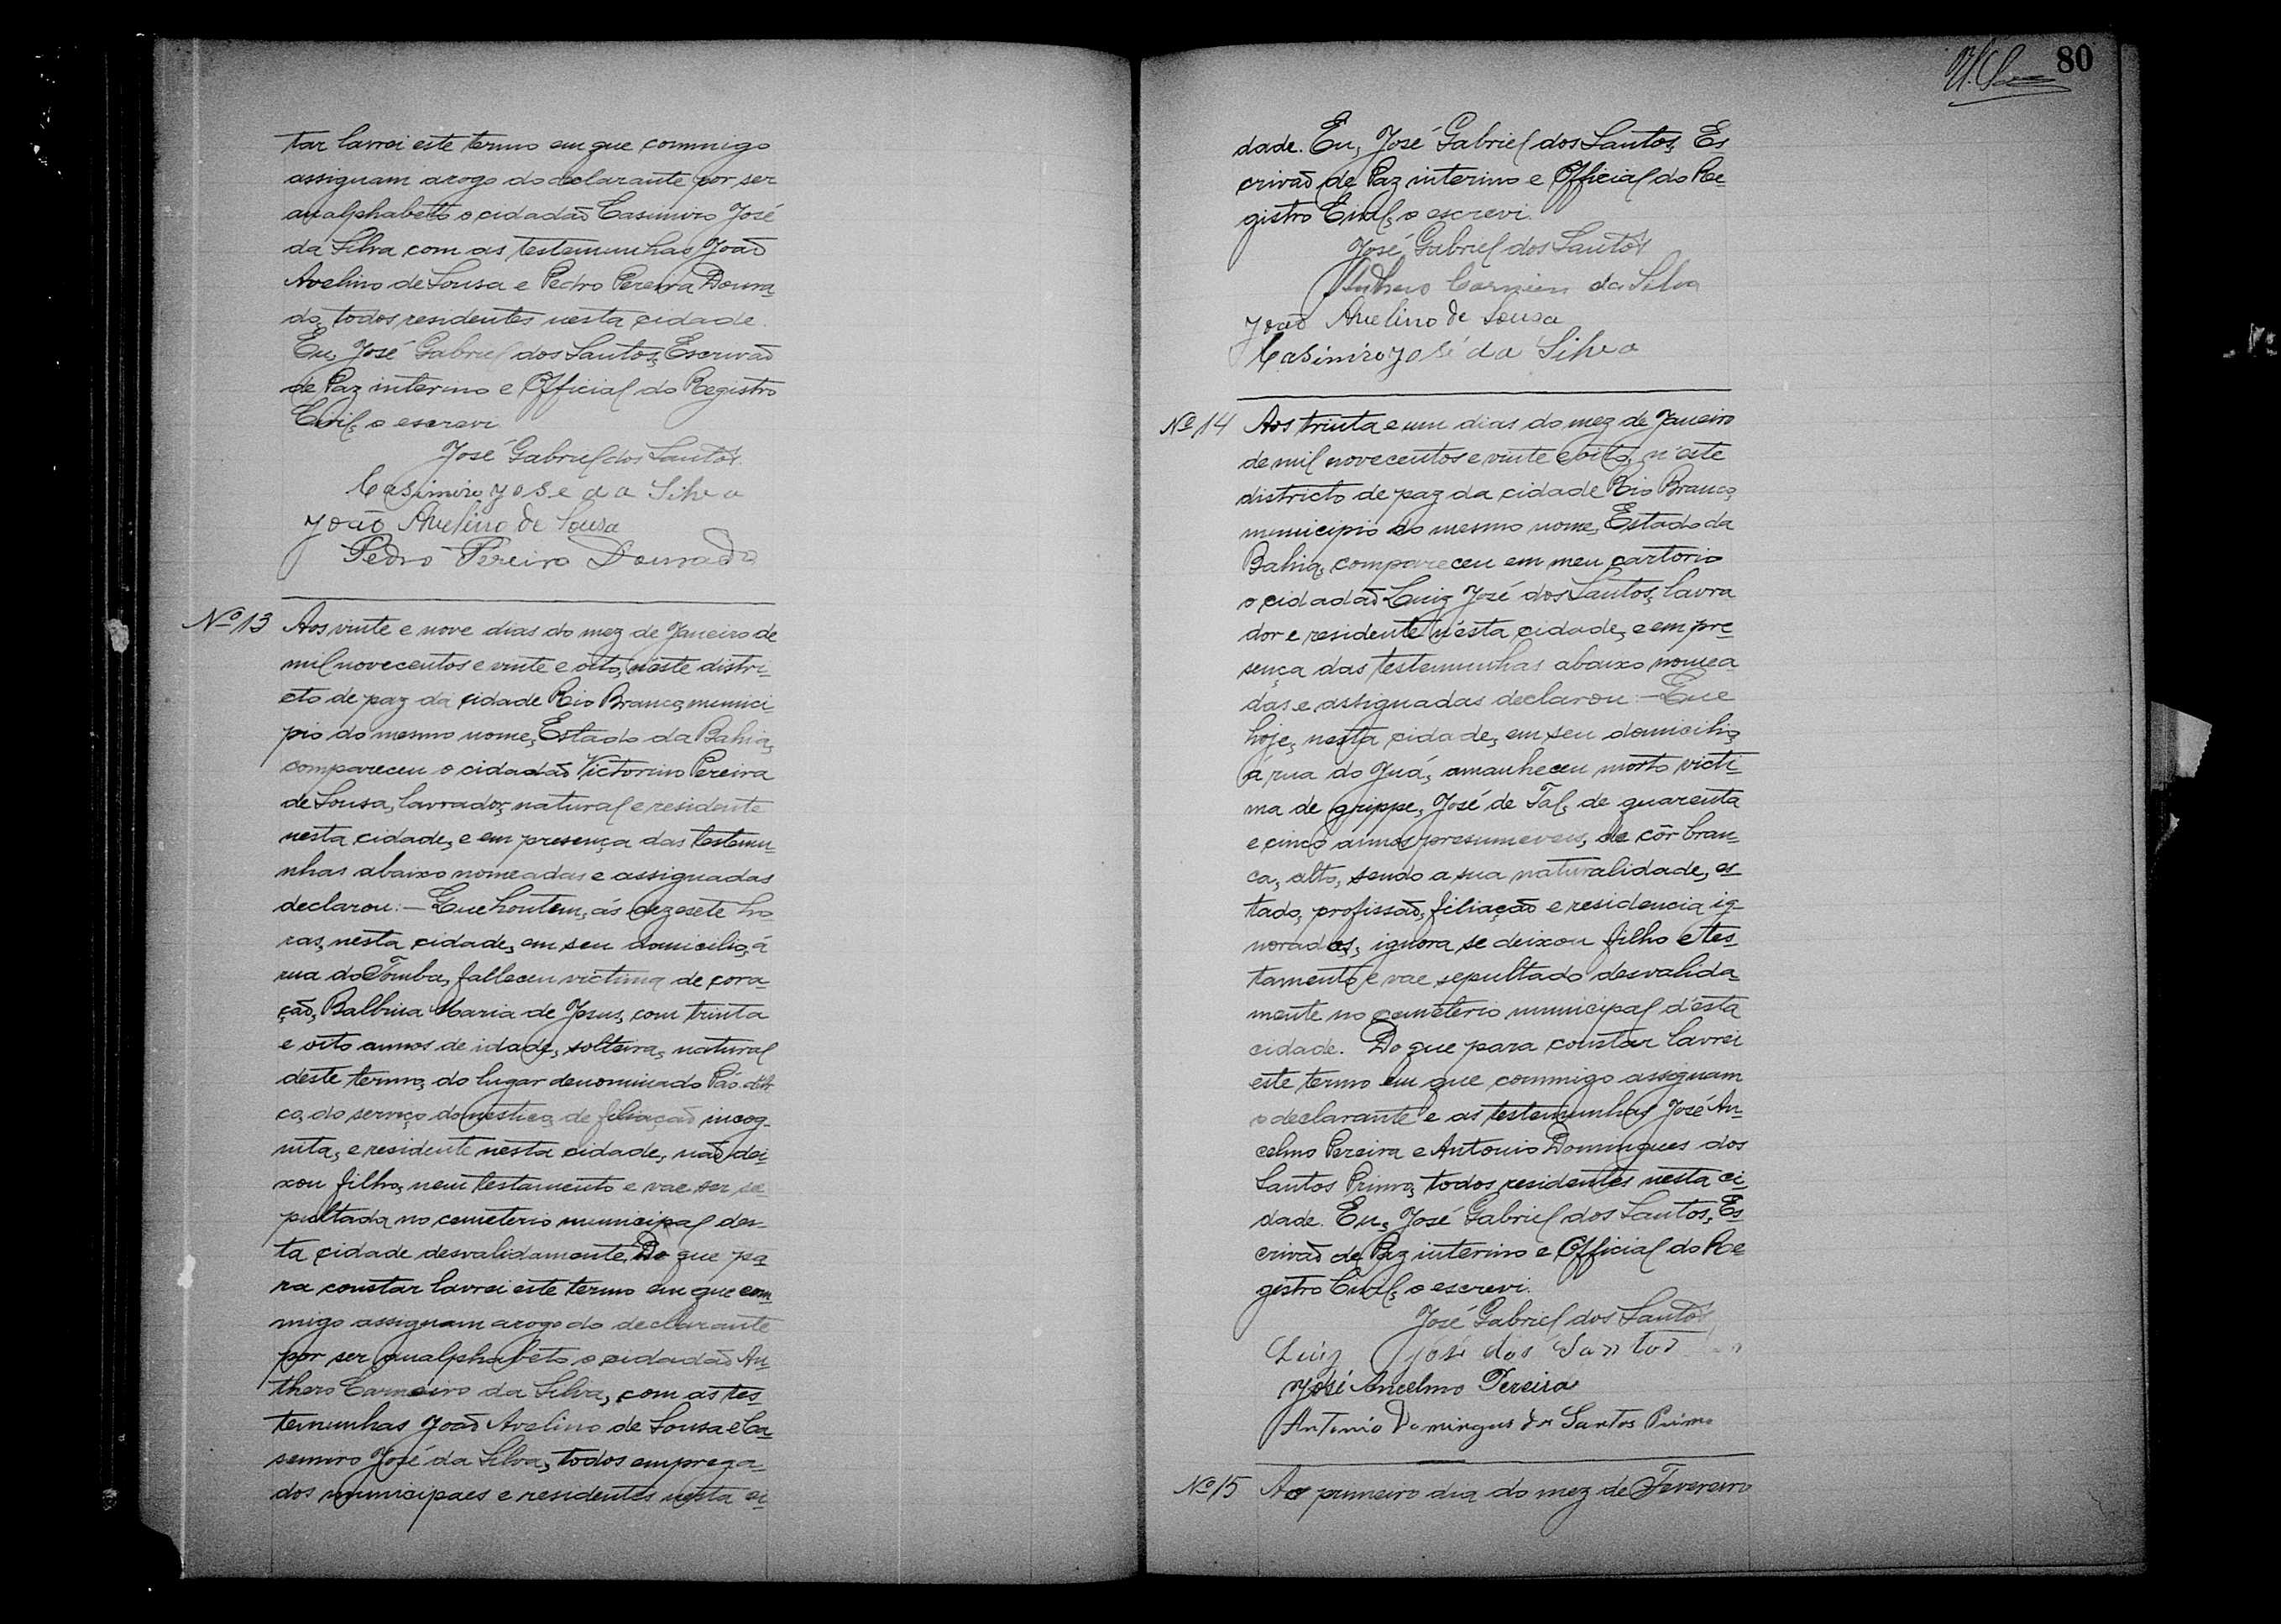 tar lavrei este termo em que commigo
assignam arogo do declarante por ser
analphabeto o cidadão Casimiro José
da Silva com as testemunhas João
Avelino de Sousa e Pedro Pereira Doura
do, todos residentes nesta cidade.
Eu, José Gabriel dos Santos, Escrivão
de Paz interino e Official do Registro
Civil, o escrevi
José Gabriel dos Santos
Casimiro José da Silva
João Avelino de Sousa
Pedro Pereira Dourado
Nº 13 Aos vinte e nove dias do mez de Janeiro de
mil novecentos e vinte e oito, n'este distri-
cto de paz da cidade Rio Branco, munici-
pio do mesmo nome, Estado da Bahia,
compareceu o cidadão Victorino Pereira
de Sousa, lavrador, natural e residente
nesta cidade, e em presença das testemu-
nhas abaixo nomeadas e assignadas
declarou: - Que hontem, ás dezesete ho
ras, nesta cidade, em seu domicilio, á
rua do Tomba, falleceu victima de cora-
ção, Balbina Maria de Jesus, com trinta
e oito annos de idade, solteira, natural
deste termo, do lugar denominado Páo
co, do serviço domestico, de filiação incog-
nita, e residente nesta cidade, não dei-
xou filho, nem testamento e vae ser se-
pultada no cemeterio municipal des-
ta cidade desvalidamente. Do que pa-
ra constar lavrei este termo em que com
migo assignam arogo do declarante
por ser analphabeto o cidadão An-
thero Carneiro da Silva, com as tes-
temunhas João Avelino de Sousa e Ca-
semiro José da Silva, todos emprega-
dos municipaes e residentes nesta ci
80
dade. Eu, José Gabriel dos Santos, Es
crivão de Paz interino e Official do Re-
gistro Civil, o escrevi.
José Gabriel dos Santos
Anthero Carneiro da Silva
João Avelino de Sousa
Casimiro José da Silva
Nº 14 Aos trinta e um dias do mez de Janeiro
de mil novecentos e vinte e oito, n'este
districto de paz da cidade Rio Branco,
municipio do mesmo nome, Estado da
Bahia, compareceu em meu cartorio
o cidadão Luiz José dos Santos, lavra
dor e residente n'esta cidade, e em pre-
sença das testemunhas abaixo nomea
das e assignadas declarou: - Que
hoje, nesta cidade, em seu domicilio,
á rua do Juá, amanheceu morto victi-
ma de grippe, José de Tal, de quarenta
e cinco annos presumeveis, de côr bran-
ca, alto, sendo a sua naturalidade, es-
tado, profissão, filiação e residencia ig-
norados, ignora se deixou filho e tes-
tamento e vae sepultado desvalida-
mente no cemeterio municipal d'esta
cidade. Do que para constar lavrei
este termo em que commigo assignam
o declarante e as testemunhas José An-
celmo Pereira e Antonio Domingues dos
Santos Primo, todos residentes nesta ci-
dade. Eu, José Gabriel dos Santos, Es-
crivão de Paz interino e Official do Re
gistro Civil, o escrevi.
José Gabriel dos Santos
Luiz José dos Santos
José Ancelmo Pereira
Antonio Domingues dos Santos Primo
Nº 15 Ao primeiro dia do mez de Fevereiro